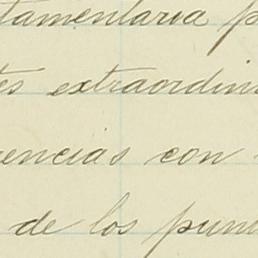 tamentaria p
es extraordin
encias con
de los pun